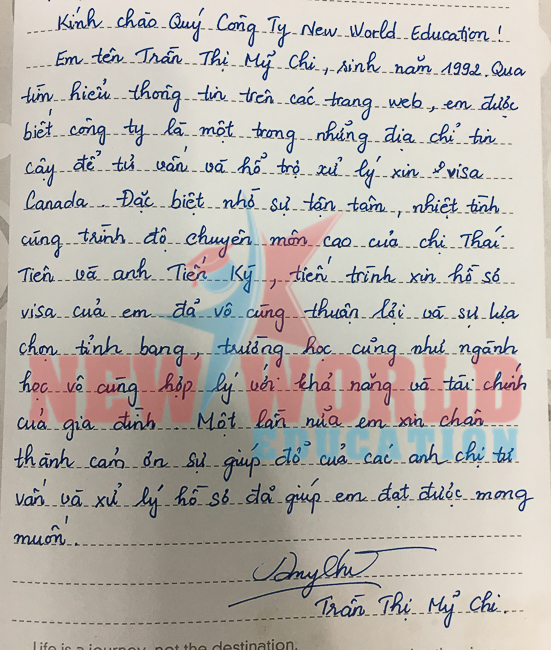 Kính chào Quý Công Ty New World Education!
Em tên Trần Thị Mỹ Chi, sinh năm 1992. Qua
tìm hiểu thông tin trên các trang web, em được
biết công ty là một trong những địa chỉ tin
cậy để tư vấn và hỗ trợ xử lý xin visa
Canada. Đặc biệt nhờ sự tận tâm, nhiệt tình
cùng trình độ chuyên môn cao của chị Thái
Tiên và anh Tiến Kỳ, tiến trình xin hồ sơ
visa của em đã vô cùng thuận lợi và sự lựa
chọn tỉnh bang, trường học cũng như ngành
học vô cùng hợp lý với khả năng và tài chính
của gia đình. Một lần nữa em xin chân
thành cảm ơn sự giúp đỡ của các anh chị tư
vấn và xử lý hồ sơ đã giúp em đạt được mong
muốn.
Trần Thị Mỹ Chi.
NEW WORLD
EDUCATION
Life is a journey, not the destination.